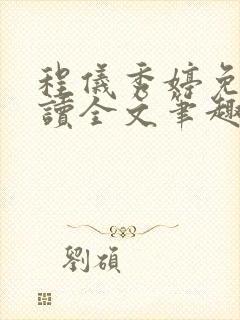 程儀秀婷免
讀全文筆趣
劉碩